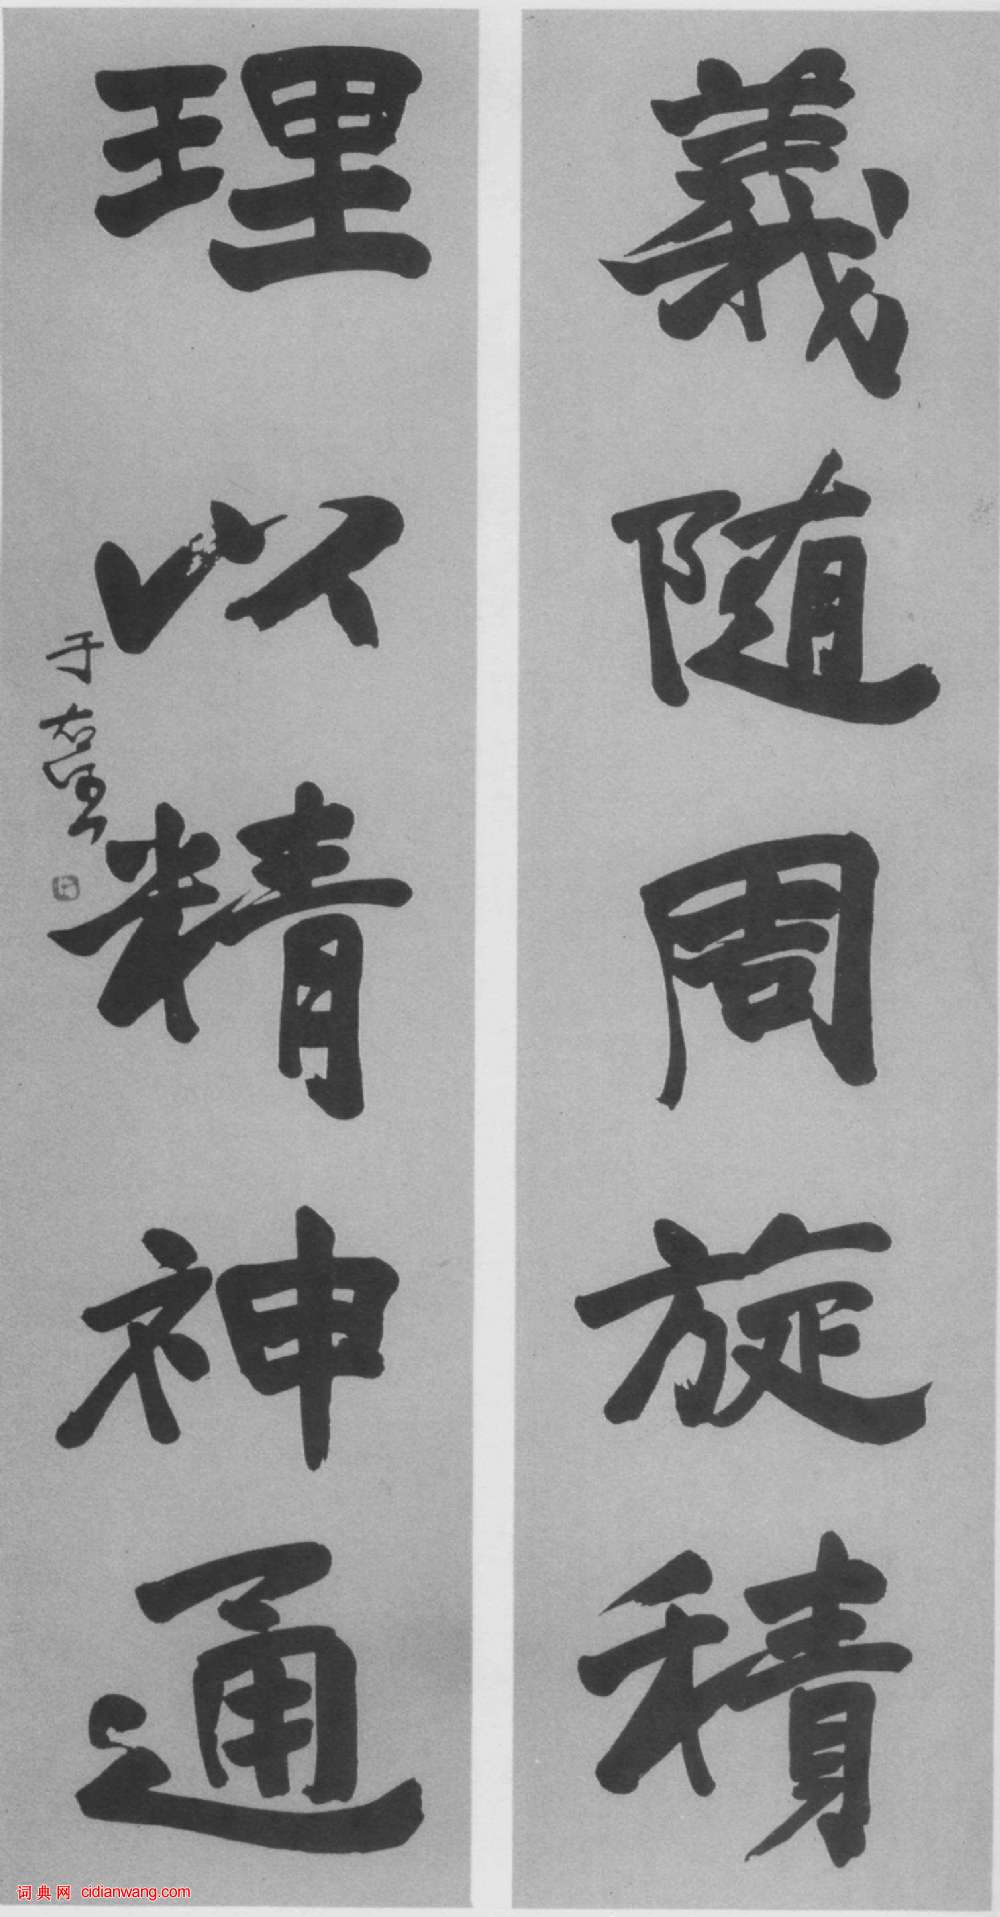 義随周旋積
理以精神通
于右任
词典网 cidianwang.com